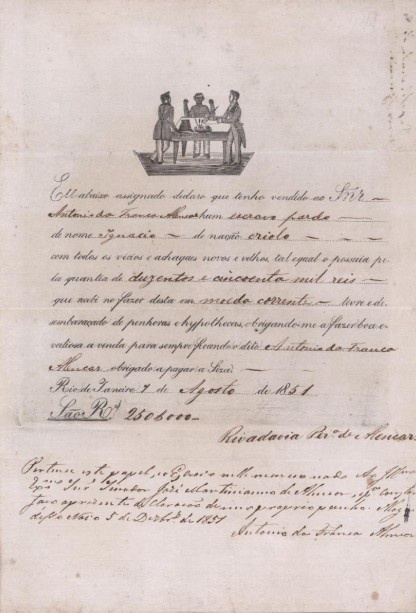 EU abaixo assignado declaro que tenho vendido ao Snr.
Antonio da Franca Alencar hum escravo pardo
de nome Ignacio de nação criolo
com todos os vicios e achaques novos e velhos, tal equal o possuia pe-
la quantia de duzentos e cincoenta mil reis
que recebi no fazer desta em moeda corrente livre e de-
sembaraçado de penhoras e hypothecas, obrigando-me a fazer boa e
valiosa a venda para sempre ficando o dito Antonio da Franca
Alencar obrigado a pagar a Siza
Rio de Janeiro 7 de Agosto de 1851
São Rs. 250$000
Rivadavia de Alencar
Pertence este papel, o mesmo nada Ao Illmo
Exmo Snr Senador José Martinianno de Alencar
faço a presente declaração de meo proprio punho.
5 de Dezbro de 1851
Antonio da Franca Alencar